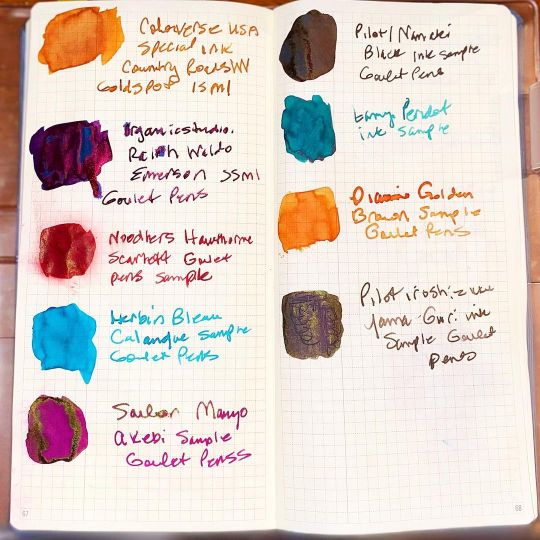 Colorverse USA
Special ink
Country Roads WV
Goldspot 15ml
Organicstudio.
Ralph Waldo
Emerson 55ml
Goulet Pens
Noodlers Hawthorne
Scarlett Goulet
pens sample
Herbin Bleau
Calanque sample
Goulet Pens
Sailor Manyo
Akebi Sample
Goulet Penss
67
Pilot/Namaki
Black ink sample
Goulet Pens
Lamy Pendot
ink sample
Diamine Golden
Brown Sample
Goulet Pens
Pilot iroshizuku
Yama-Guri ink
Sample Goulet
pens
68